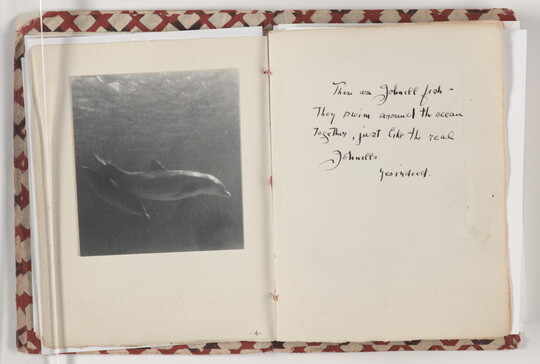 These are Johnell fish -
They swim around the ocean
Together, just like the real
Johnells.
yes indeed.
4